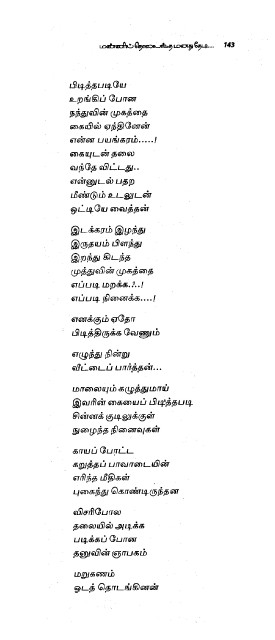 மண்ணில் தொலைந்த மனது தேடி... 143
பிடித்தபடியே
உறங்கிப் போன
நந்துவின் முகத்தை
கையில் ஏந்தினேன்
என்ன பயங்கரம்.....!
கையுடன் தலை
வந்தே விட்டது..
என்னுடல் பதற
மீண்டும் உடலுடன்
ஒட்டியே வைத்தன்
இடக்கரம் இழந்து
இருதயம் பிளந்து
இறந்து கிடந்த
முத்துவின் முகத்தை
எப்படி மறக்க.?..!
எப்படி நினைக்க....!
எனக்கும் ஏதோ
பிடித்திருக்க வேணும்
எழுந்து நின்று
வீட்டைப் பார்த்தன்...
மாலையும் கழுத்துமாய்
இவரின் கையைப் பிடித்தபடி
சின்னக் குடிலுக்குள்
நுழைந்த நினைவுகள்
காயப் போட்ட
கறுத்தப் பாவாடையின்
எரிந்த மீதிகள்
புகைந்து கொண்டிருந்தன
விசரிபோல
தலையில் அடிக்க
படிக்கப் போன
தனுவின் ஞாபகம்
மறுகணம்
ஓடத் தொடங்கினன்